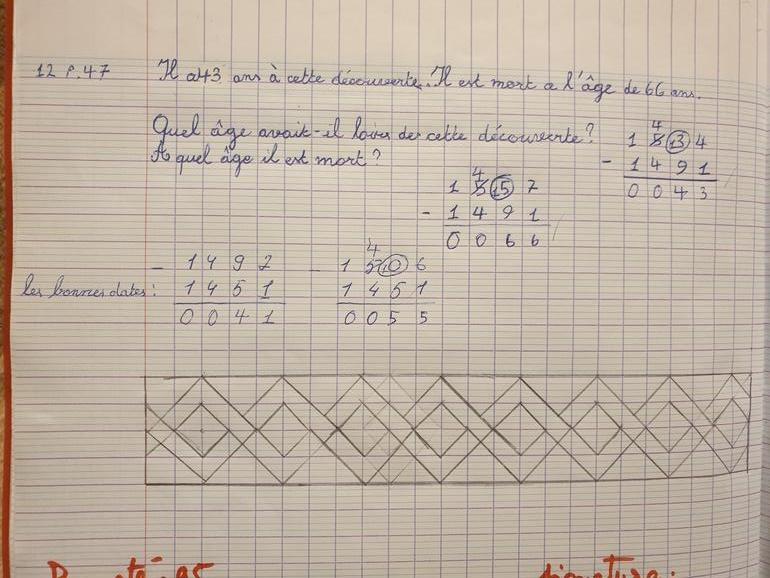 12 p.47 Il a 43 ans à cette découverte. Il est mort a l'âge de 66 ans.
Quel âge avait-il lors de cette découverte?
A quel âge il est mort?
4
1 5 13 4
- 1 4 9 1
0 0 4 3
4
1 5 15 7
- 1 4 9 1
0 0 6 6
les bonnes dates:
- 1 4 9 2
1 4 5 1
0 0 4 1
4
- 1 5 10 6
1 4 5 1
0 0 5 5
signature: